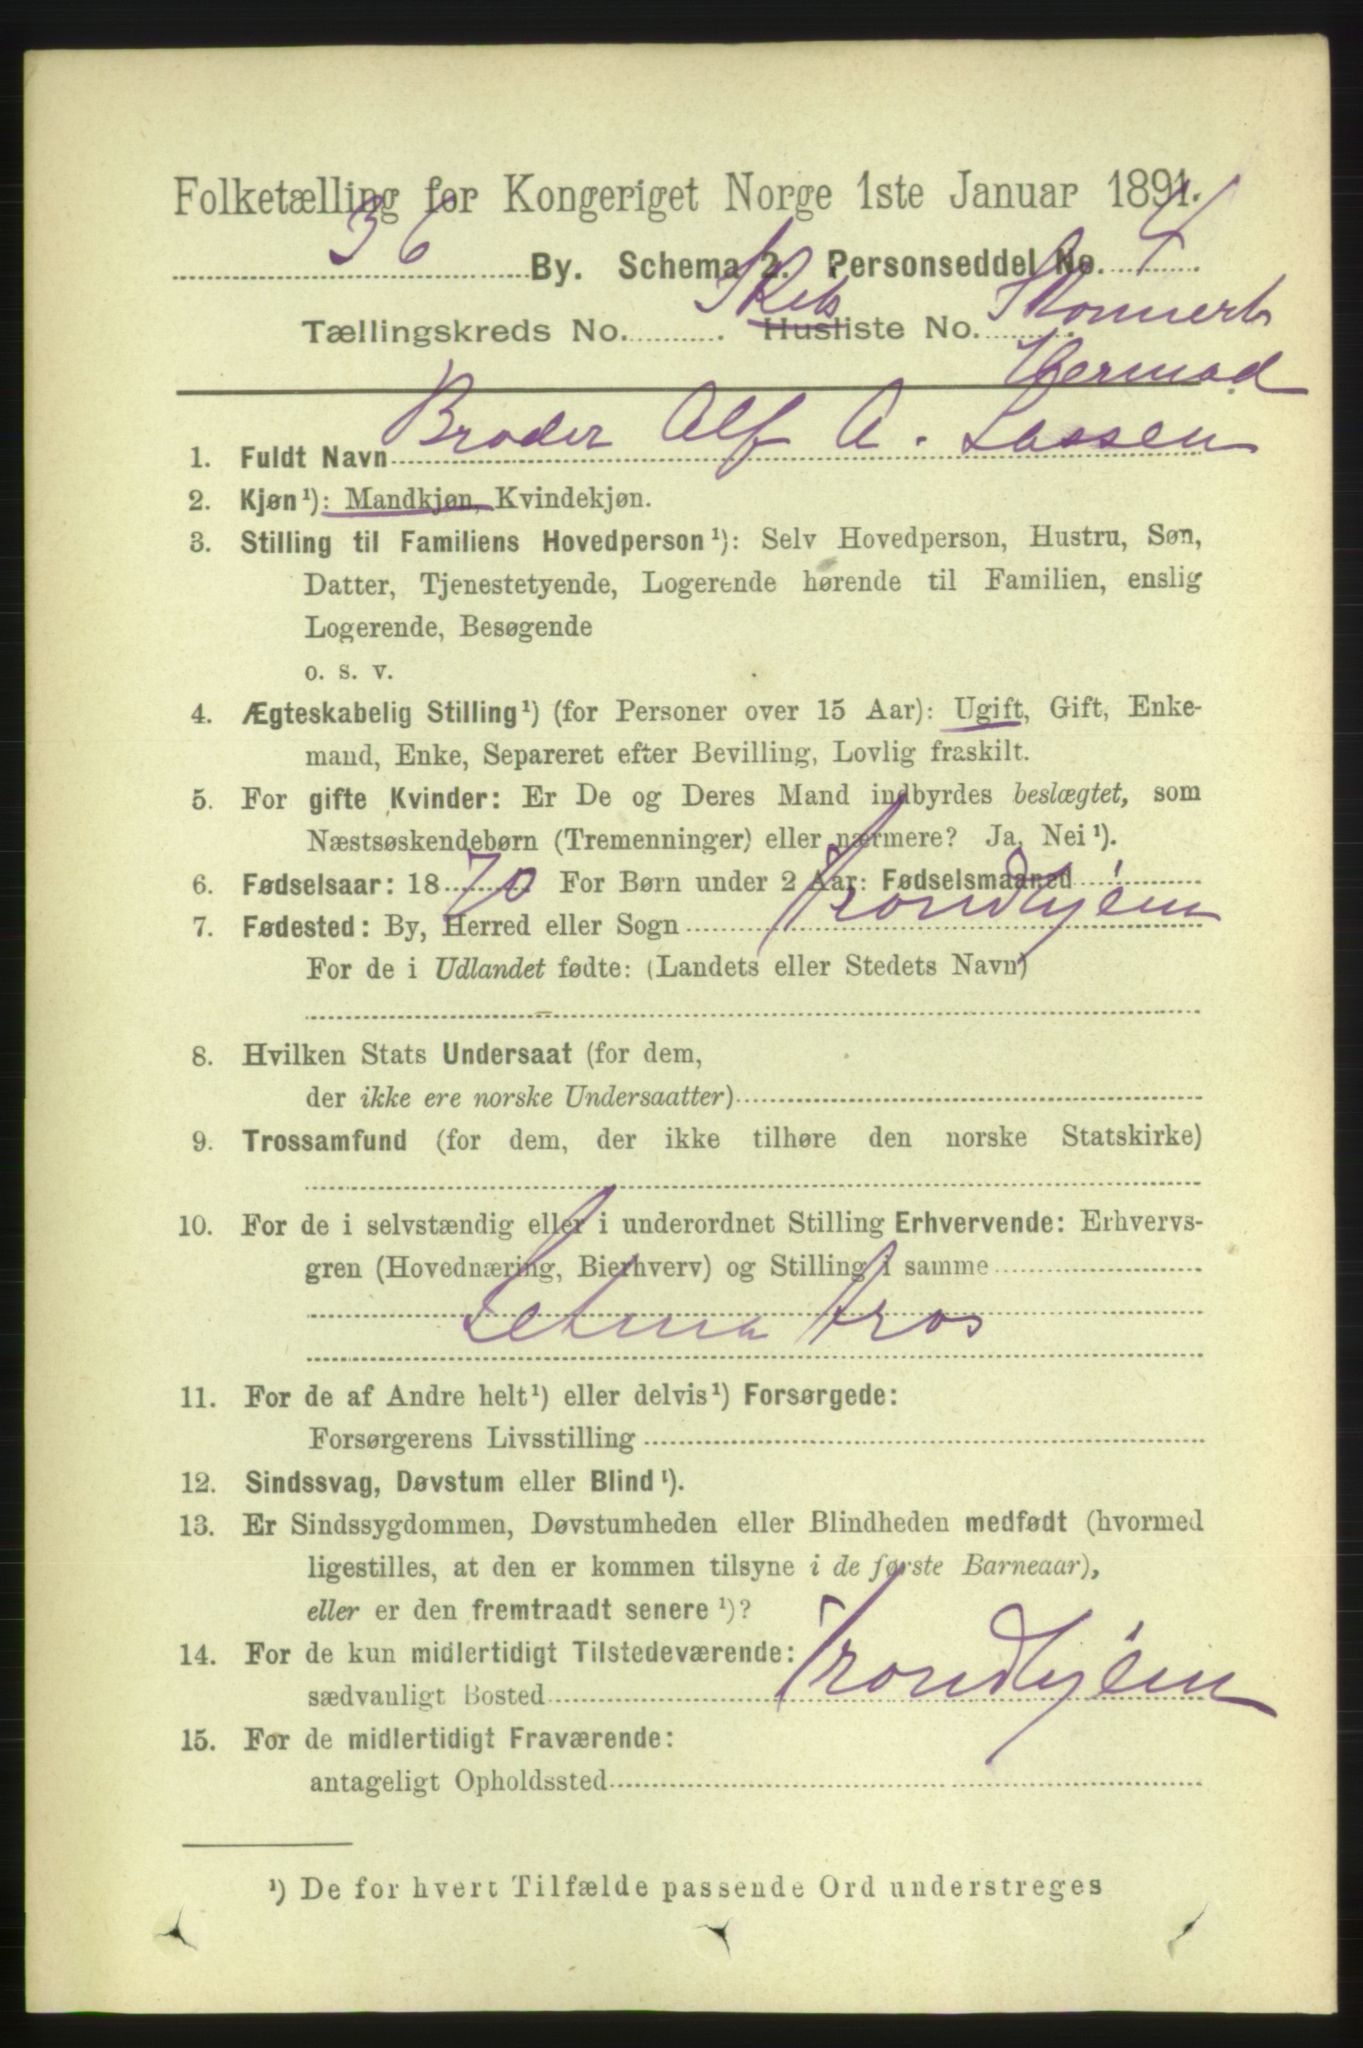 Folketælling for Kongeriget Norge 1ste Januar 1891.
36 By. Schema 2. Personseddel No. 4
Tællingskreds No. Skibs Husliste No. Skonnert
Hermod
1. Fuldt Navn Broder Alf A. Lassen
2. Kjøn ¹): Mandkjøn, Kvindekjøn.
3. Stilling til Familiens Hovedperson ¹): Selv Hovedperson, Hustru, Søn,
Datter, Tjenestetyende, Logerende hørende til Familien, enslig
Logerende, Besøgende
o. s. v.
4. Ægteskabelig Stilling ¹) (for Personer over 15 Aar): Ugift, Gift, Enke-
mand, Enke, Separeret efter Bevilling, Lovlig fraskilt.
5. For gifte Kvinder: Er De og Deres Mand indbyrdes beslægtet, som
Næstsøskendebørn (Tremenninger) eller nærmere? Ja, Nei ¹).
6. Fødselsaar: 1870 For Børn under 2 Aar: Fødselsmaaned
7. Fødested: By, Herred eller Sogn Trondhjem
For de i Udlandet fødte: (Landets eller Stedets Navn)
8. Hvilken Stats Undersaat (for dem,
der ikke ere norske Undersaatter)
9. Trossamfund (for dem, der ikke tilhøre den norske Statskirke)
10. For de i selvstændig eller i underordnet Stilling Erhvervende: Erhvervs-
gren (Hovednæring, Bierhverv) og Stilling i samme
11. For de af Andre helt ¹) eller delvis ¹) Forsørgede:
Forsørgerens Livsstilling
12. Sindssvag, Døvstum eller Blind ¹).
13. Er Sindssygdommen, Døvstumheden eller Blindheden medfødt (hvormed
ligestilles, at den er kommen tilsyne i de første Barneaar),
eller er den fremtraadt senere ¹)?
14. For de kun midlertidigt Tilstedeværende:
sædvanligt Bosted Trondhjem
15. For de midlertidigt Fraværende:
antageligt Opholdssted
¹) De for hvert Tilfælde passende Ord understreges